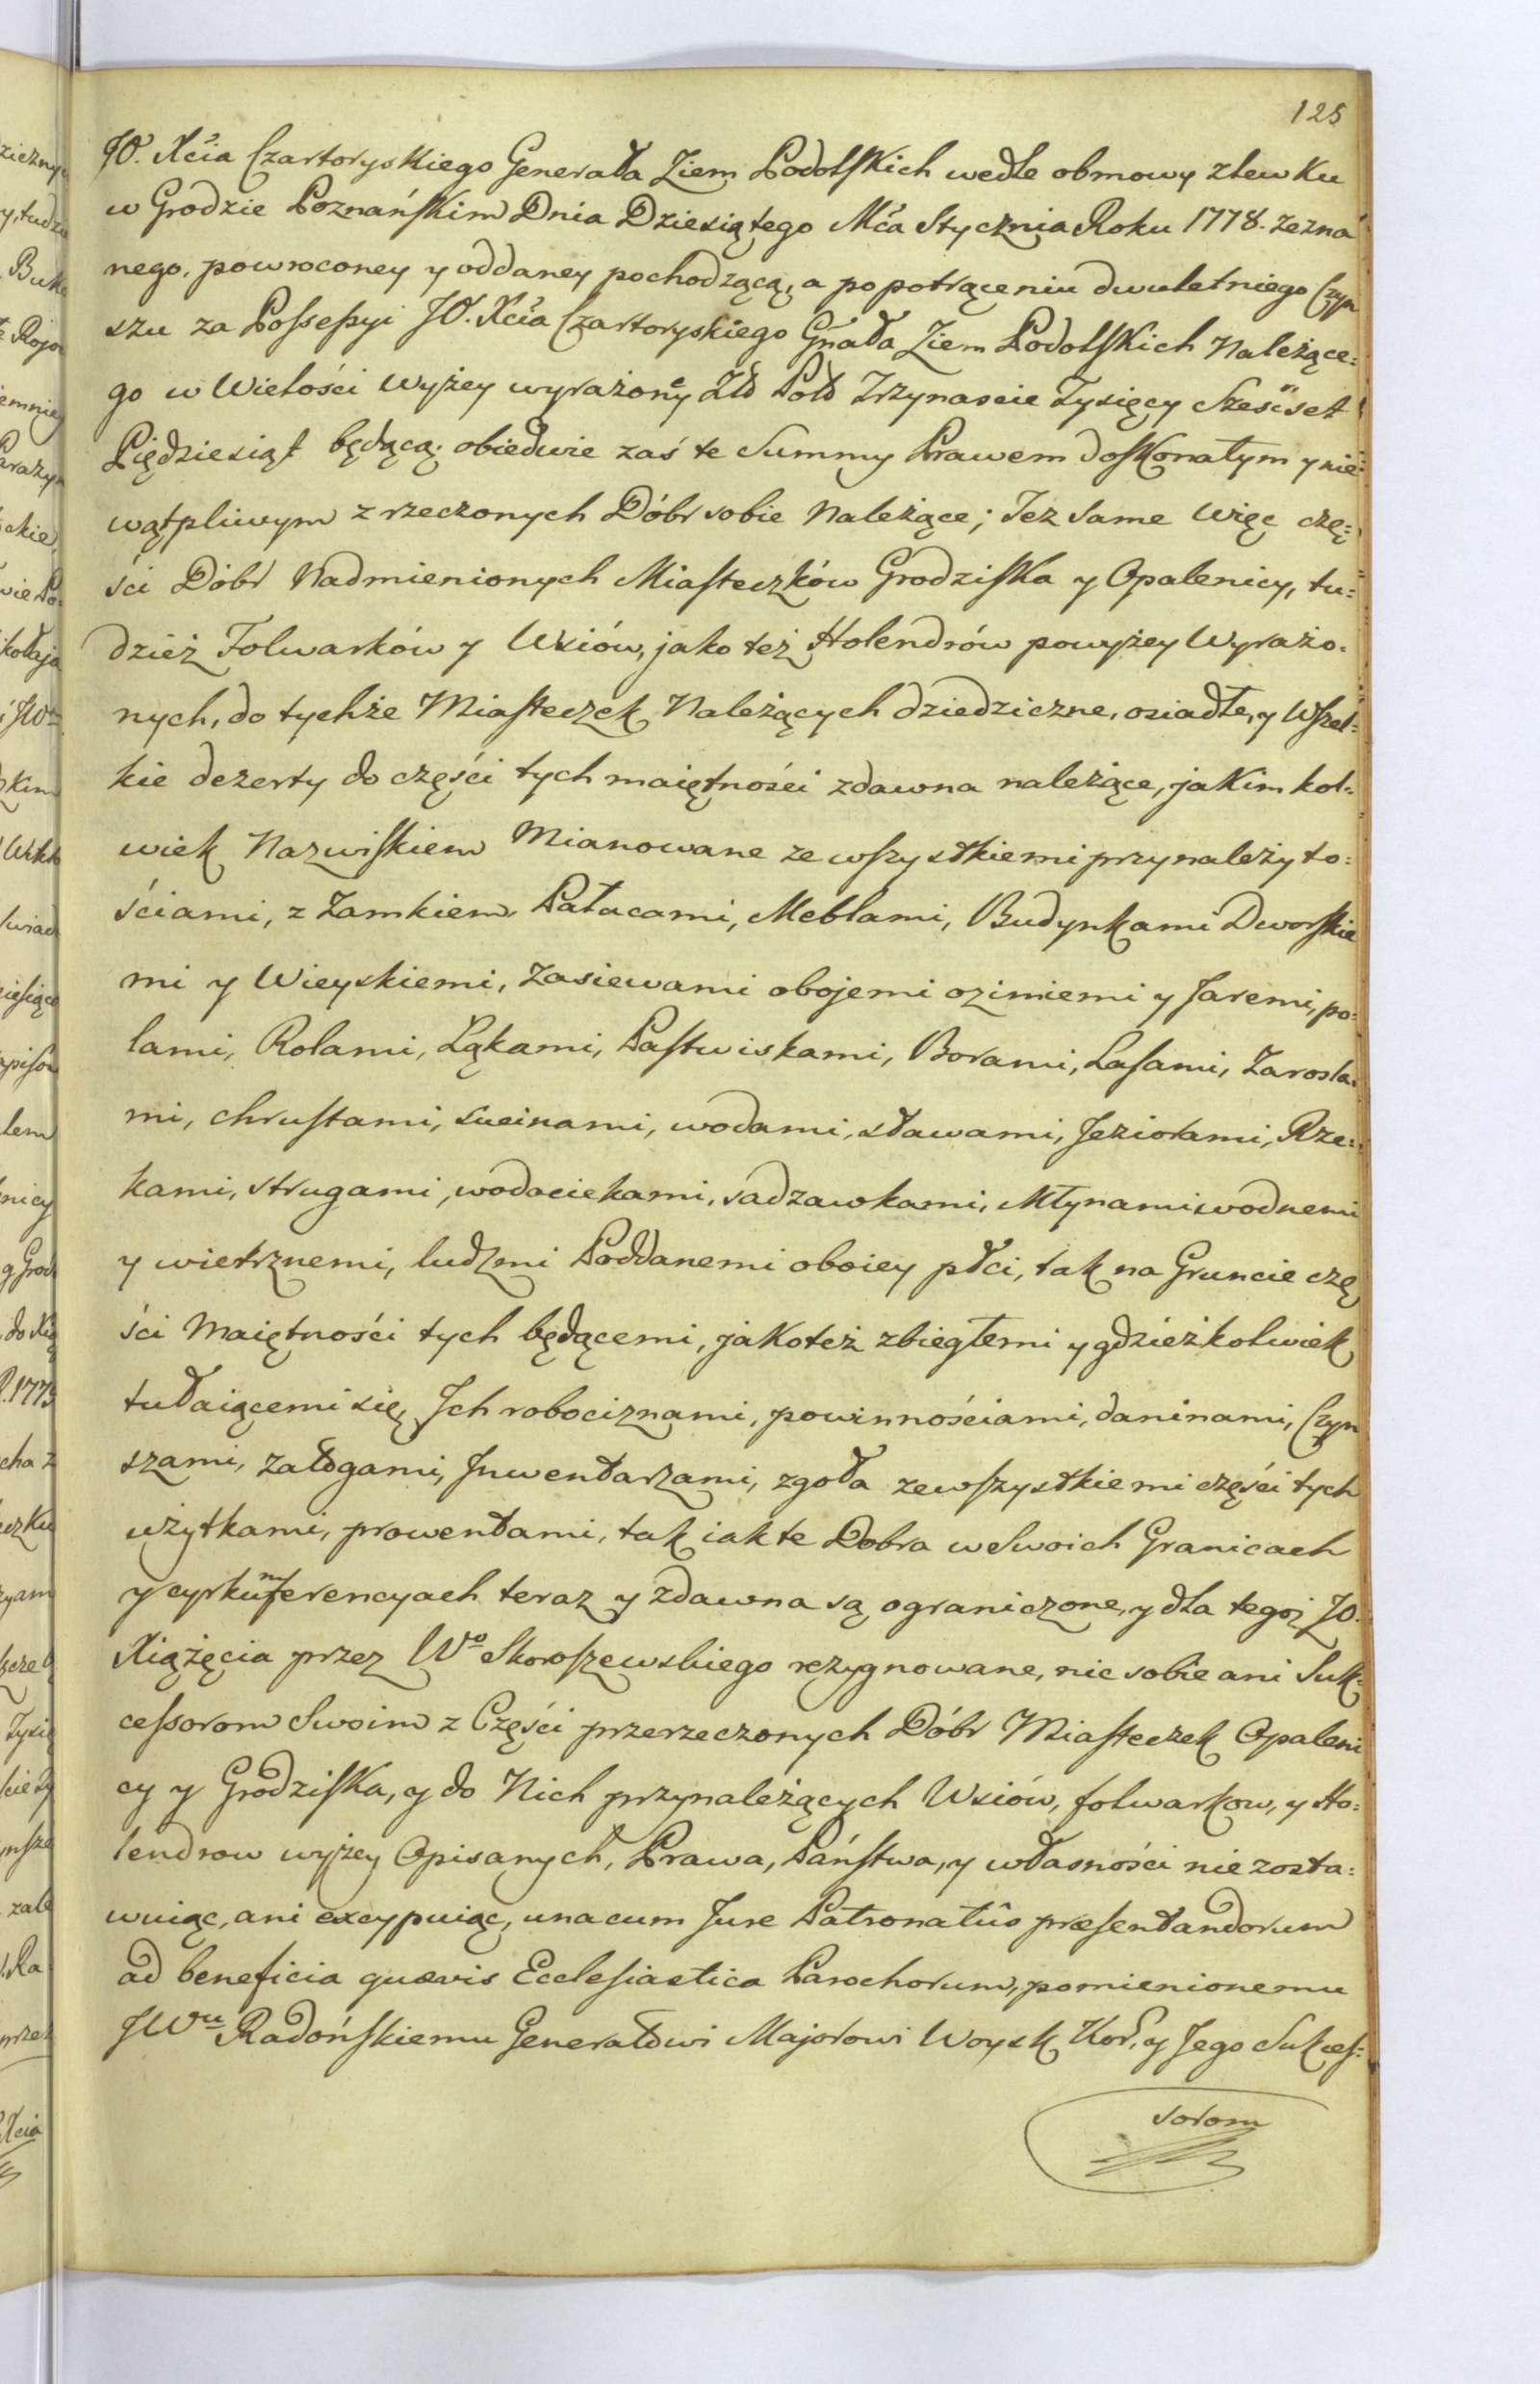 125
JO. Xcia Czartoryskiego Generała Ziem Podolskich wedle obmowy zlewku
w Grodzie Poznańskim Dnia Dziesiątego Mca Stycznia Roku 1778. zezna
nego, powroconey y oddaney pochodzącą, a po potrąceniu dwuletniego Czyn
szu za Possessyi JO. Xcia Czartoryskiego Gnała Ziem Podolskich Należące:
go w Wielości wyżey wyrażoney Zło Pols Trzynascie Tysięcy Sześćset
Piędziesiąt będącą; obiedwie zaś te Summy Prawem doskonałym y nie:
wątpliwym z rzeczonych Dóbr sobie Należące; Też same więc czę:
ści Dóbr Nadmienionych Miasteczków Grodziska y Opalenicy, tu:
dzież Folwarków y Wsiów, jako też Holendrów powyżey Wyrażo.
nych, do tychże Miasteczek Należących dziedziczne, osiadłe, y Wszel:
kie dezerty do części tych maiętności zdawna należące, jakim kol.
wiek Nazwiskiem Mianowane ze wszystkiemi przynależyto:
ściami, z Zamkiem, Pałacami, Meblami, Budynkami Dworskie
mi y Wieyskiemi, zasiewami obojemi ozimiemi y Jaremi, po:
lami, Rolami, Łąkami, Pastwiskami, Borami, Lasami, Zarosla.
mi, chrustami, sucinami, wodami, stawami, Jeziorami, Rze:
kami, strugami, wodociekami, sadzawkami, Młynami wodnemi
y wietrznemi, ludzmi Poddanemi oboiey płci, tak na Gruncie czę
ści Maiętności tych będącemi, jako też zbiegłemi y gdzieżkolwiek
tułaiącemi się, Ich robociznami, powinnościami, daninami, Czyn
szami, załogami, Inwentarzami, zgoła zewszystkiemi części tych
użytkami, prowentami, tak iak te Dobra w Swoich Granicach
y cyrkumferencyach teraz y zdawna są ograniczone, y dla tegoż JO.
Xiążęcia przez Wo Skoroszewskiego rezygnowane, nic sobie ani Suk:
cessorom Swoim z Części przerzeczonych Dóbr Miasteczek Opaleni
cy y Grodziska, y do Nich przynależących Wsiów, folwarkow, y Ho:
lendrow wyżey Opisanych, Prawa, Państwa, y własności nie zosta:
wuiąc, ani excypuiąc, unacum Jure Patronatûs præsentandorum
ad beneficia quævis Ecclesiastica Parochorum, pomienionemu
JWu Radońskiemu Generałowi Majorowi Woysk Kor. y Jego Sukces:
sorom